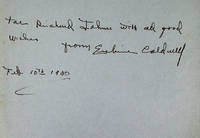 For Richard with all good
wishes
from Erskine Caldwell
Feb 10th 1940